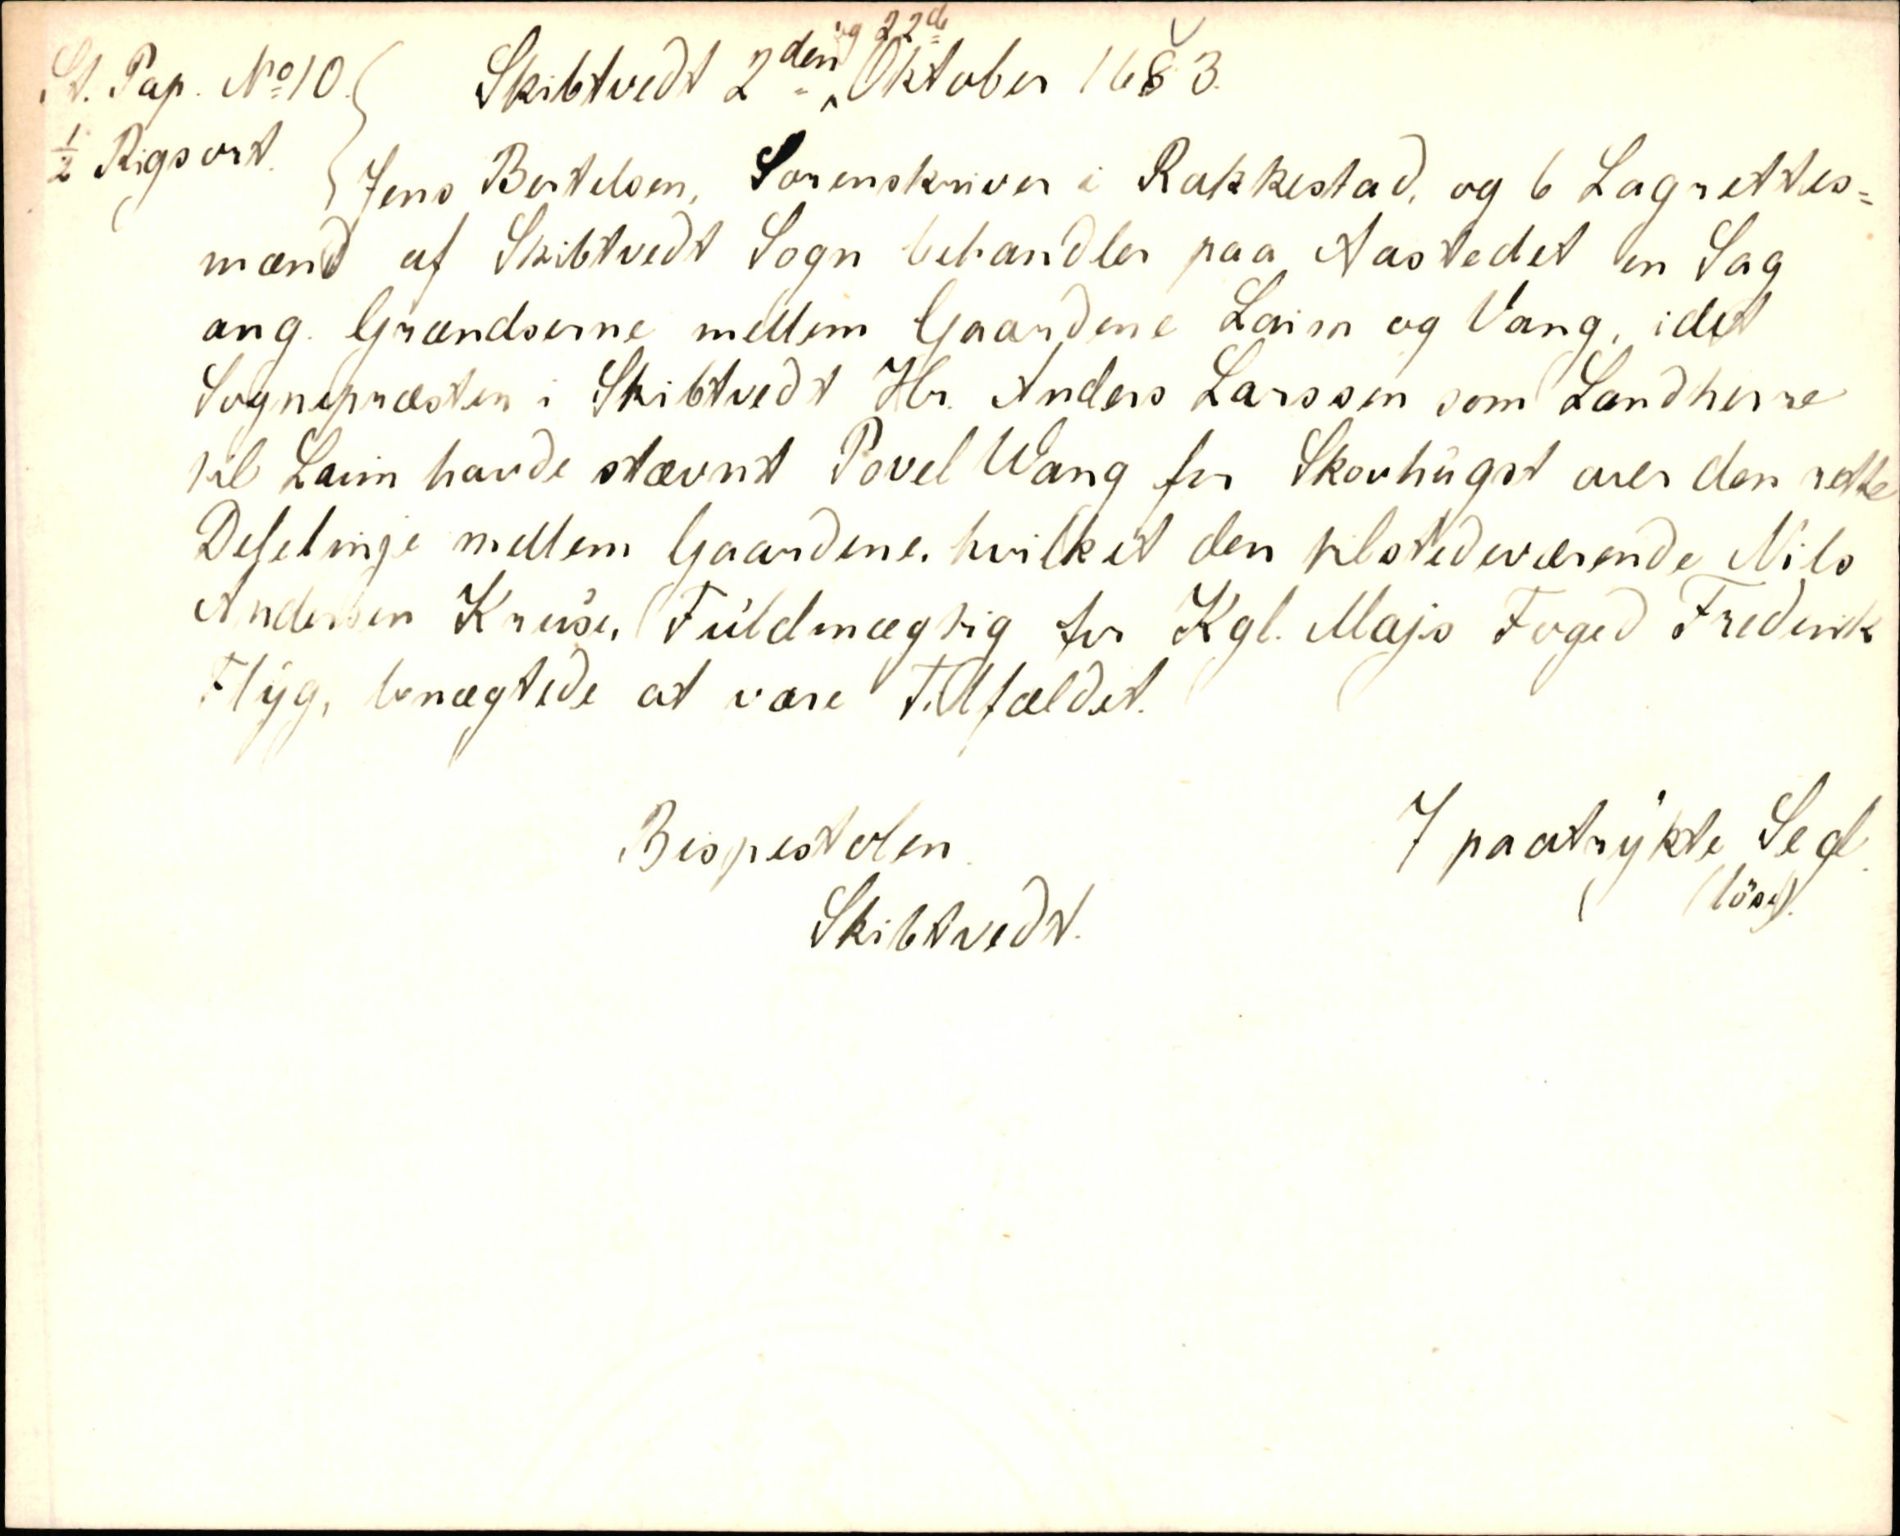 St. Pap. No 10.
½ Rigsort.
Skibtvedt 2den og 22de Oktober 1683.
Jens Bertelsen, Sorenskriver i Rakkestad, og 6 Lagrettes=
mænd af Skibtvedt Sogn behandler paa Aastedet en Sag
ang. Grændserne mellem Gaardene Laim og Vang, idet
Sognepræsten i Skibtvedt Hr. Anders Larssen som Landherre
til Laim havde stævnt Povel Wang for Skovhugst over den rette
Delelinje mellem Gaardene, hvilket den tilstedeværende Nils
Andersen Kruse, Fuldmægtig for Kgl. Majs Foged Frederik
Flyg, benægtede at være Tilfældet.
7 paatrykte Segl.
(löse).
Bispestolen.
Skibtvedt.